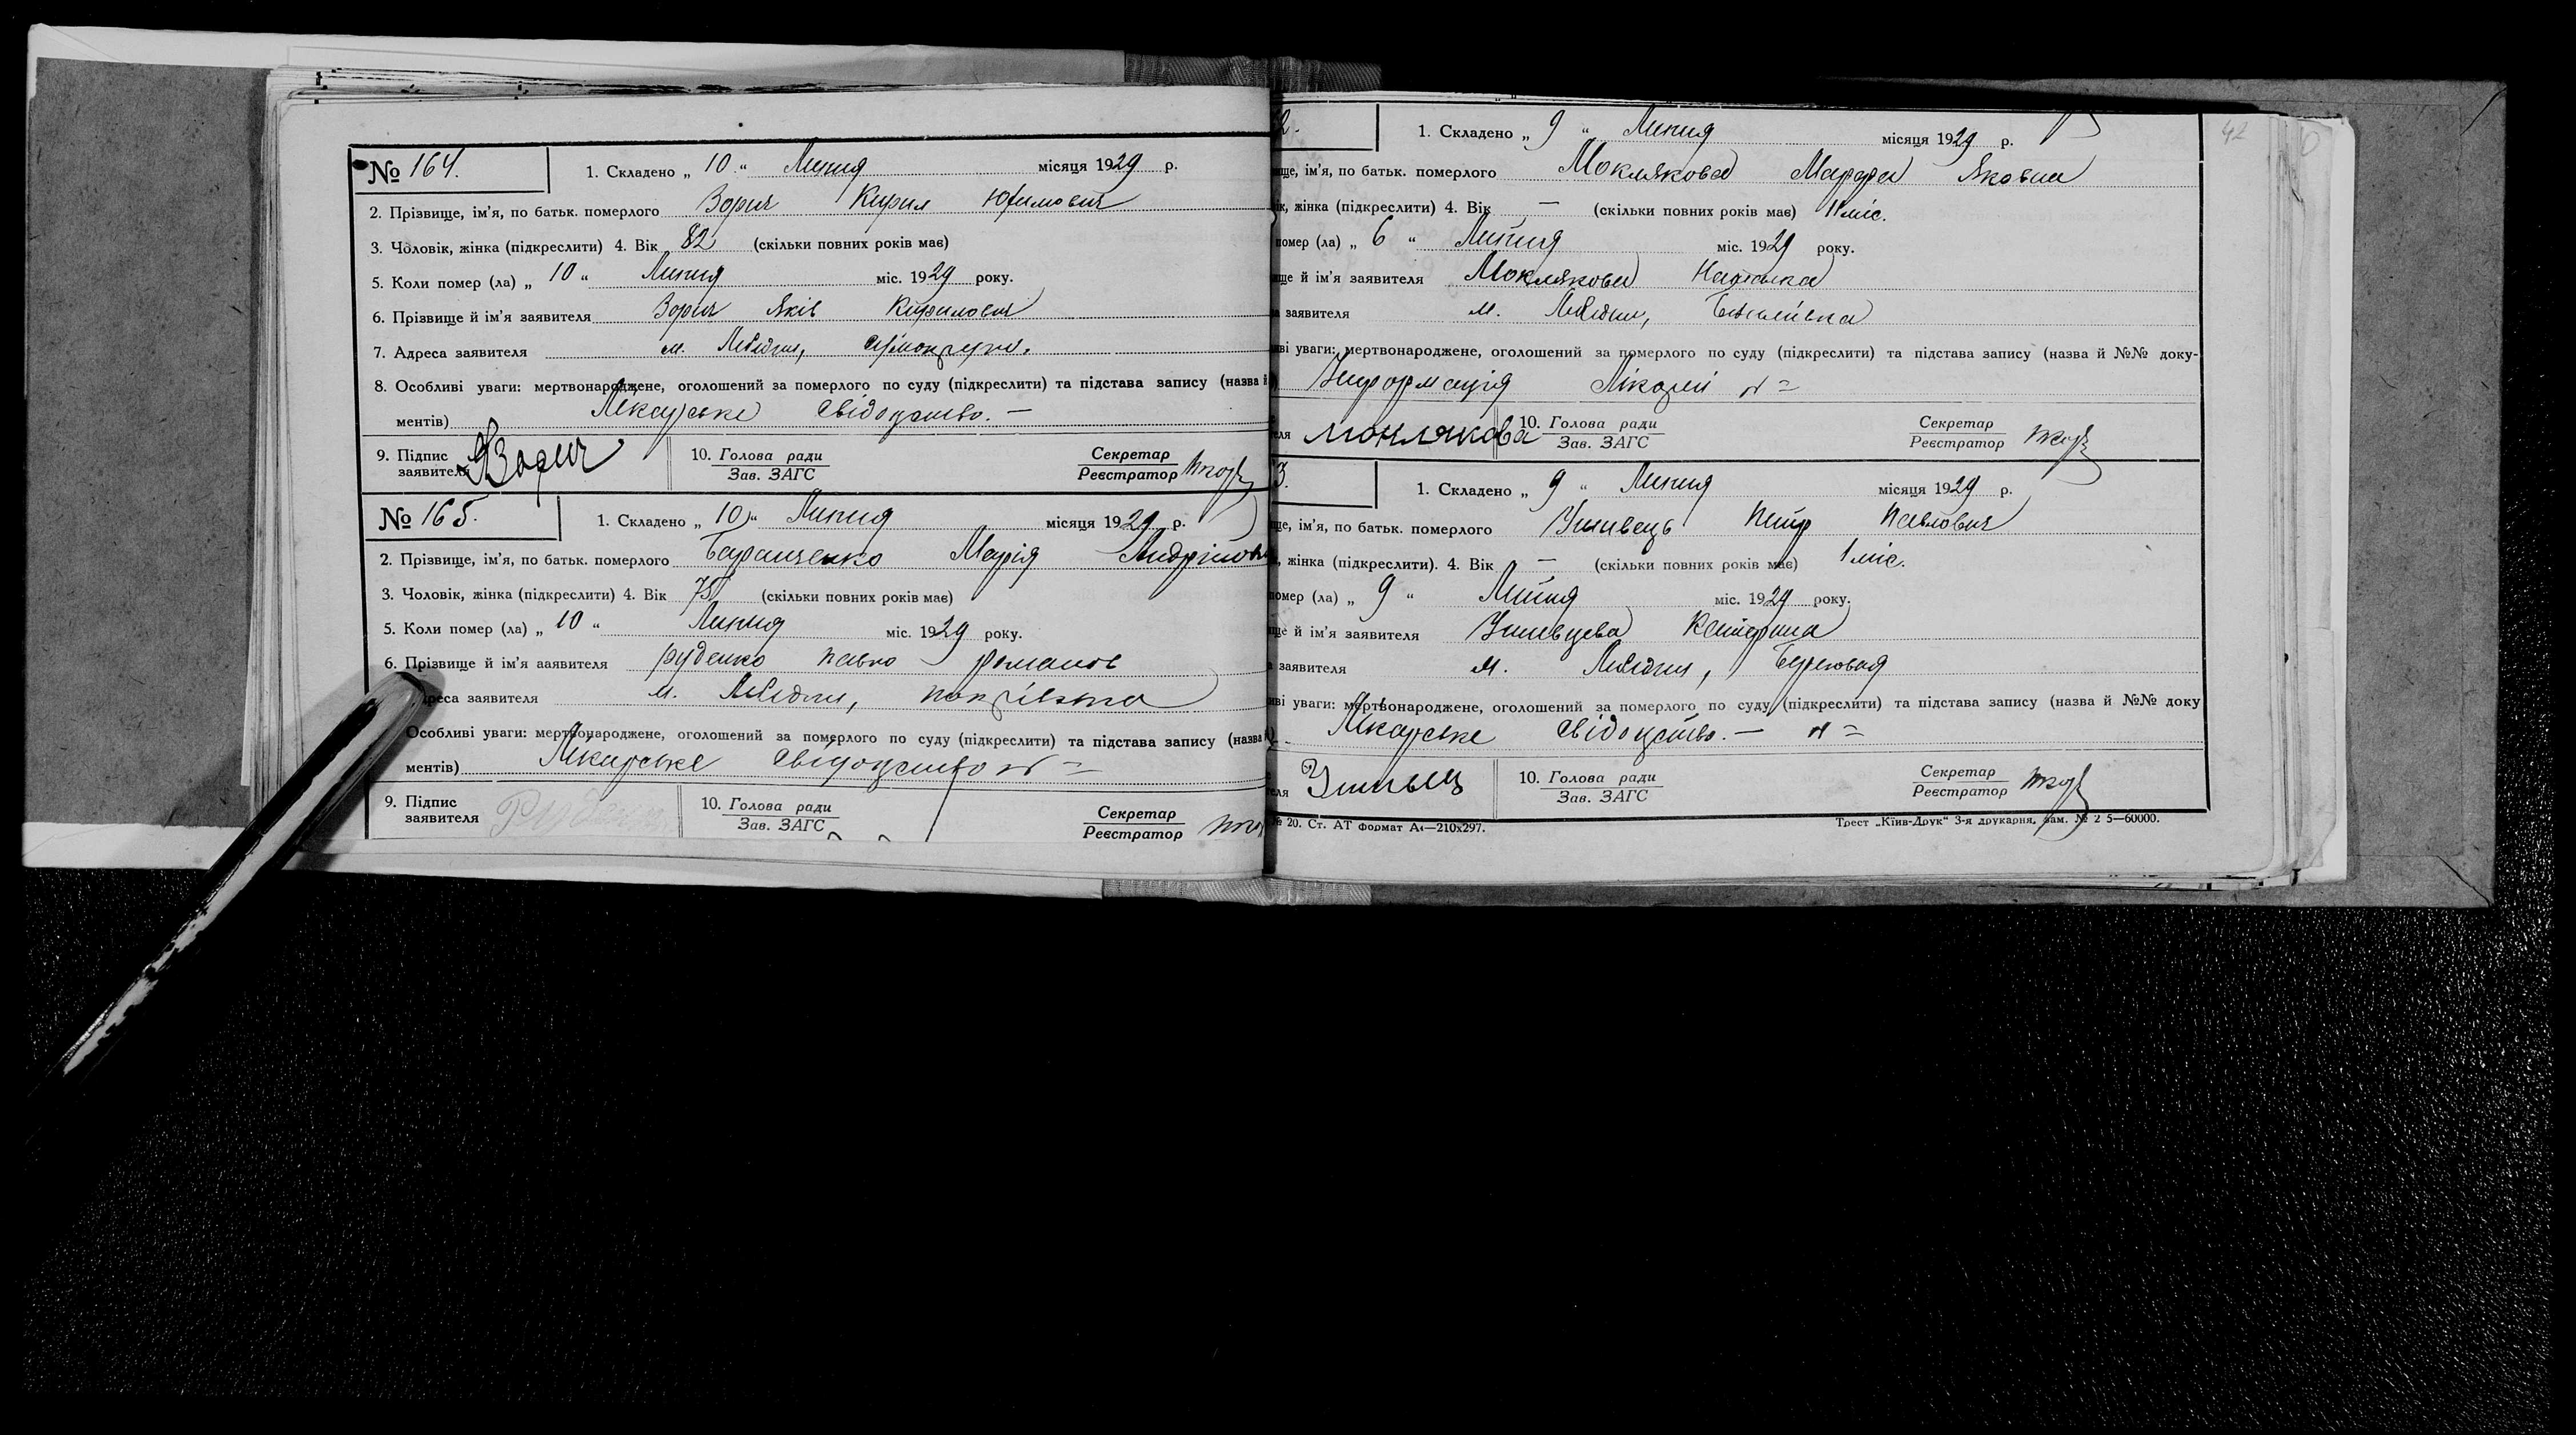 № 164. 1. Складено „ 10 “ Липня місяця 1929 р.
2. Прізвище, ім'я, по батьк. померлого Зорич Кирил Юхимович
3. Чоловік, жінка (підкреслити) 4. Вік 82 (скільки повних років має)
5. Коли помер (ла) „ 10 “ Липня міс. 1929 року.
6. Прізвище й ім'я заявителя Зорич Яків Кирилович
7. Адреса заявителя м. Лебедин,
8. Особливі уваги: мертвонароджене, оголошений за померлого по суду (підкреслити) та підстава запису (назва й
ментів) Лікарське свідоцтво. —
9. Підпис заявителя ЯЗорич 10. Голова ради Зав. ЗАГС Секретар Реєстратор
№ 165. 1. Складено „ 10 “ Липня місяця 1929 р.
2. Прізвище, ім'я, по батьк. померлого Баранченко Марія
3. Чоловік, жінка (підкреслити) 4. Вік 75 (скільки повних років має)
5. Коли помер (ла) „ 10 “ Липня міс. 1929 року.
6. Прізвище й ім'я аявителя Руденко Павло Романов
реса заявителя м. Лебедин,
Особливі уваги: мертвонароджене, оголошений за померлого по суду (підкреслити) та підстава запису (назва
ментів) Лікарське свідоцтво № =
9. Підпис заявителя 10. Голова ради Зав. ЗАГС Секретар Реєстратор
42
2. 1. Складено „ 9 “ Липня місяця 1929 р.
ще, ім'я, по батьк. померлого Моклякова Марфа Яковна
ік, жінка (підкреслити) 4. Вік — (скільки повних років має) 11 міс.
помер (ла) „ 6 “ Липня міс. 1929 року.
ще й ім'я заявителя Моклякова Наталка
а заявителя м. Лебедин,
иві уваги: мертвонароджене, оголошений за померлого по суду (підкреслити) та підстава запису (назва й №№ доку-
Інформація Лікарні № =
еля Моклякова 10. Голова ради Зав. ЗАГС Секретар Реєстратор
3. 1. Складено „ 9 “ Липня місяця 1929 р.
ще, ім'я, по батьк. померлого Ушивець Петр Павлович
, жінка (підкреслити). 4. Вік — (скільки повних років має) 1 міс.
помер (ла) „ 9 “ Липня міс. 1929 року.
ще й ім'я заявителя Ушивцева Катерина
а заявителя м. Лебедин,
иві уваги: мертвонароджене, оголошений за померлого по суду (підкреслити) та підстава запису (назва й №№ доку
Лікарське свідоцтво. — № =
еля 10. Голова ради Зав. ЗАГС Секретар Реєстратор
№ 20. Ст. АТ Формат А4—210x297. Трест „Київ-Друк“ 3-я друкарня, Зам. № 2 5—60000.